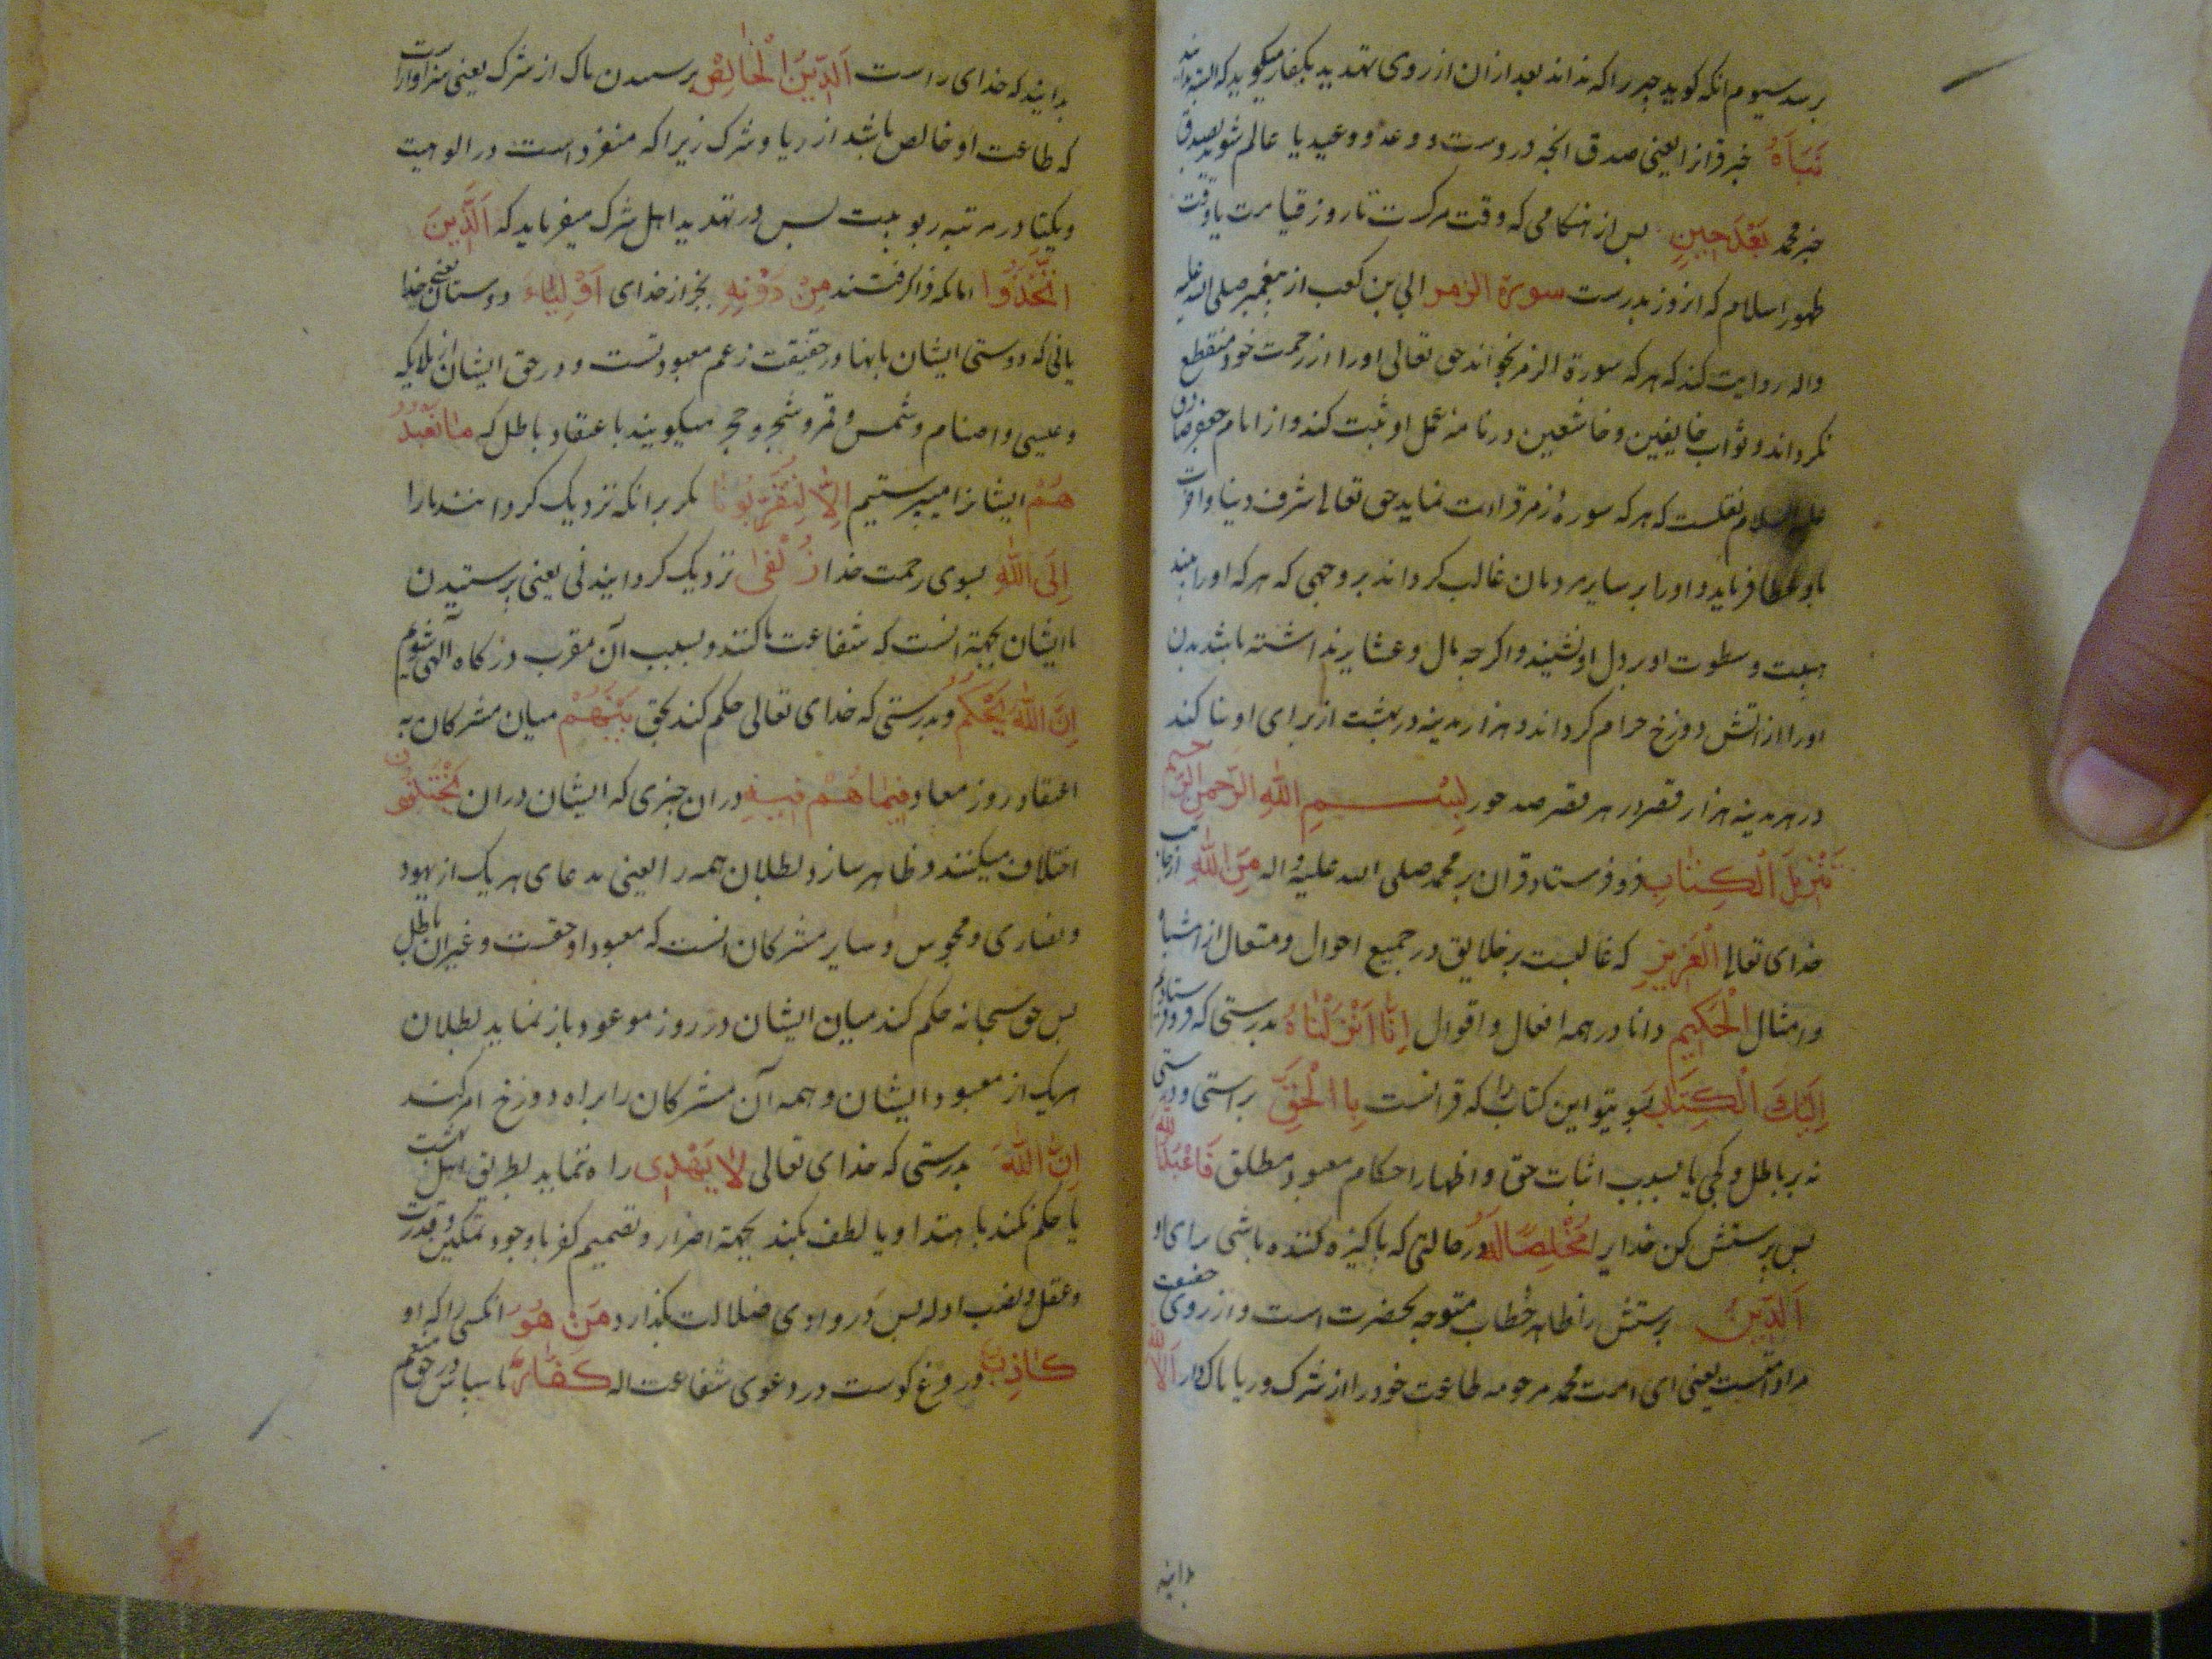 برسد سیوم انکه کوید چیز را که نداند بعد ازان از روی تهدید بکفار میکوید که البته بدانید
نَبَأهُ خبر قرانرا یعنی صدق انچه دروست و وعد و وعید یا عالم شوید بصدق
خبر محمد بَعْدَ حِینٍ پس از هنکامی که وقت مرکست تا روز قیامت یا وقت
ظهور اسلام که انروز بدرست سورة الزمر ابی بن کعب از پیغمبر صلی الله علیه
واله روایت کند که هر که سورة الزمر بخواند حق تعالی اورا از رحمت خود منقطع
نکرداند و ثواب خایفین و خاشعین در نامه عمل او ثبت کند و از امام جعفر صادق
علیه السلام نقلست که هر که سورهٔ زمر قراءت نماید حق تعالی شرف دنیا و اخرت
باو عطا فرماید و اورا بر سایر مردمان غالب کرداند بر وجهی که هر که اورا بیند
هیبت و سطوت او بر دل او نشیند و اکرچه مال و عشایر نداشته باشد بدن
اورا از اتش دوزخ حرام کرداند و هزار مدینه در بهشت از برای او بنا کند
در هر مدینه هزار قصر در هر قصر صد حور بِسْمِ اللّٰهِ الرَّحمنِ الرَّحیم
تَنْزِیلُ الْکِتَابِ فرو فرستاد قران بر محمد صلی الله علیه و اله مِنَ اللّٰهِ از جانب
خدای تعالی الْعَزِیزِ که غالبست بر خلایق در جمیع احوال و متعال از اشباه
و امثال الْحَکِیمِ دانا در همه افعال و اقوال اِنَّا اَنْزَلْنَاهُ بدرستی که فرو فرستادیم
اِلَیْكَ الْکِتَابَ بسوی تو این کتاب را که قرانست بِالْحَقِّ براستی و درستی
نه بر باطل و کجی یا بسبب اثبات حق و اظهار احکام معبود مطلق فَاعْبُدِ اللّٰهَ
پس پرستش کن خدایرا مُخْلِصًا لَهُ در حالتی که پاکیزه کننده باشی برای او
اَلدِّینَ پرستش را ظاهر خطاب متوجه بحضرت است و از روی حقیقت
مراد امتست یعنی ای امت محمد مرحومه طاعت خود را از شرک و ریا پاک دار اَلَا لِلّٰهِ
بدانید
بدانید که خدای راست اَلدِّینُ الْخَالِصُ پرستیدن پاک از شرک یعنی سزاوارست
که طاعت او خالص باشد از ریا و شرک زیرا که منفرد است در الوهیت
و یکتا در مرتبه ربوبیت پس در تهدید اهل شرک میفرماید که اَلَّذِینَ
اتَّخَذُوا انانکه فرا کرفتند مِنْ دُوْنِهِ بجز از خدای اَوْلِیَاءَ دوستان یعنی خدا
یانی که دوستی ایشان بانها در حقیقت زعم معبودتست و در حق ایشان از ملایکه
و عیسی و اصنام و شمس و قمر و شجر و حجر میکویند باعتقاد باطل که مَا نَعْبُدُ
هُمْ ایشانرا نمیپرستیم اِلَّا لِیُقَرِّبُونَا مکر برانکه نزدیک کردانند مارا
اِلَی اللّٰهِ بسوی رحمت خدا زُلْفٰی نزدیک کردانیدنی یعنی پرستیدن
ما ایشان بجهة انست که شفاعت ما کنند و بسبب آن مقرب درکاه آلهی شویم
اِنَّ اللّٰهَ یَحْکُمُ و بدرستی که خدای تعالی حکم کند بحق بَیْنَهُمْ میان مشرکان به
اعتقاد روز معاد فِیمَا هُمْ فِیهِ دران چیزی که ایشان دران یَخْتَلِفُونَ
اختلاف میکنند و ظاهر سازد بطلان همه را یعنی مدعای هر یک از یهود
و نصاری و مجوس و سایر مشرکان انست که معبود او حقست و غیر ان باطل
پس حق سبحانه حکم کند میان ایشان در روز موعود باز نماید بطلان
هر یک از معبود ایشان و همه آن مشرکان را براه دوزخ امر کند
اِنَّ اللّٰهَ بدرستی که خدای تعالی لَا یَهْدِی راه ننماید بطریق اهل بهشت
یا حکم نکند باهتدا و یا لطف نکند بجهة اصرار و تصمیم کفر با وجود تمکین و قدرت
و عقل و نصب ادله پس در وادی ضلالت بکذارد مَنْ هُوَ انکسی را که او
کَاذِبٌ دروغ کوست در دعوی شفاعت اله کَفَّارٌ نا سپاس در حق منعم